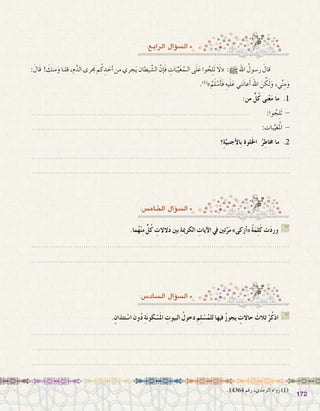 • السؤال الرابع:
قال رسول الله ﷺ: «لا تَلِجُوا عَلَى المُغيَّبَاتِ فَإِنَّ الشَّيطانَ يَجري مِن أَحَدِكُم مَجرى الدَّمِ، قلنا: وَمنك؟ قالَ:
ومِنِّي، ولكنَّ الله أعانَني عليه فَأَسْلَمُ»(1).
1. ما معنى كُلٍّ من:
– تَلِجُوا:
– المُغيَّبات:
2. ما مَخاطِرُ الخَلوةِ بالأجنبيَّة؟
• السؤال الخامس:
وردَت كلمَةُ «أزكى» مرَّتين في الآياتِ الكريمةِ بين دَلالاتِ كُلٍّ منهُما.
• السؤال السادس:
اذكُر ثلاثَ حالاتٍ يجوزُ فيها للمُسْلِمِ دخولُ البيوتِ المَسْكونَةِ دُونَ اسْتئذانٍ.
(1) رواه الترمذي، رقم 14364.
172